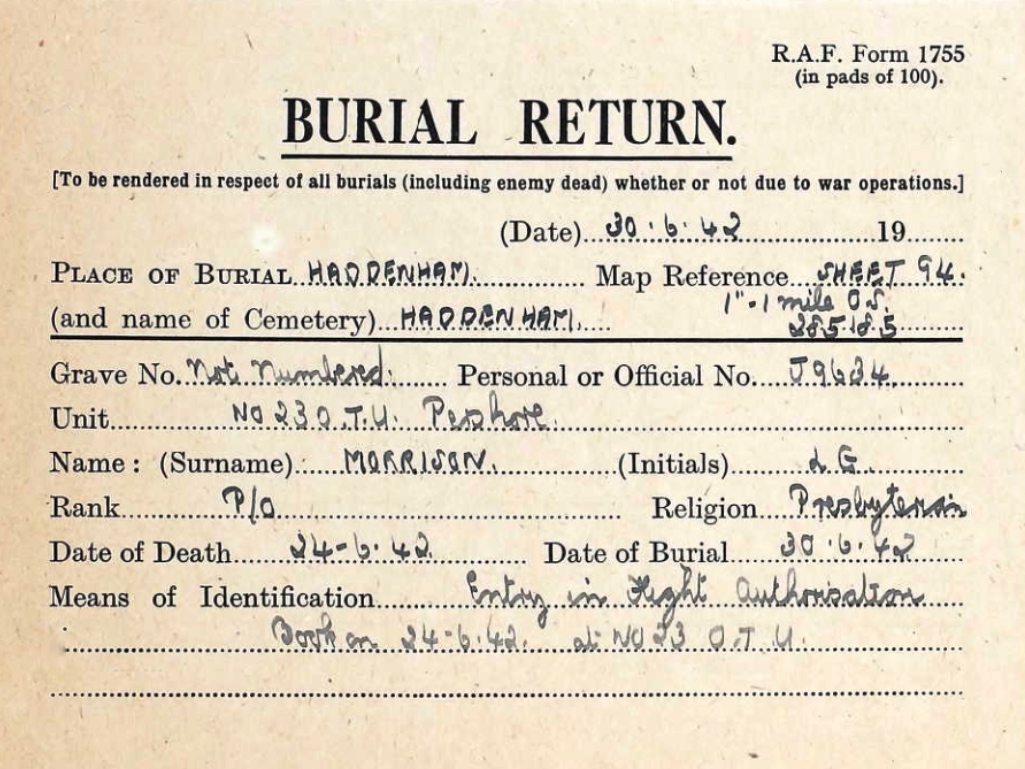 R.A.F. Form 1755
(in pads of 100).
BURIAL RETURN.
[To be rendered in respect of all burials (including enemy dead) whether or not due to war operations.]
(Date) 30.6.42 19
PLACE OF BURIAL HADDENHAM. Map Reference SHEET 94.
1"-1 mile O.S.
(and name of Cemetery) HADDENHAM. 285185
Grave No. Not Numbered. Personal or Official No. J9634
Unit No 23 O.T.U. Pershore.
Name: (Surname) MORRISON. (Initials) L G.
Rank P/O Religion Presbyterian
Date of Death 24-6-42. Date of Burial 30.6.42
Means of Identification Entry in Flight Authorisation
Book on 24-6-42. at No 23 O.T.U.